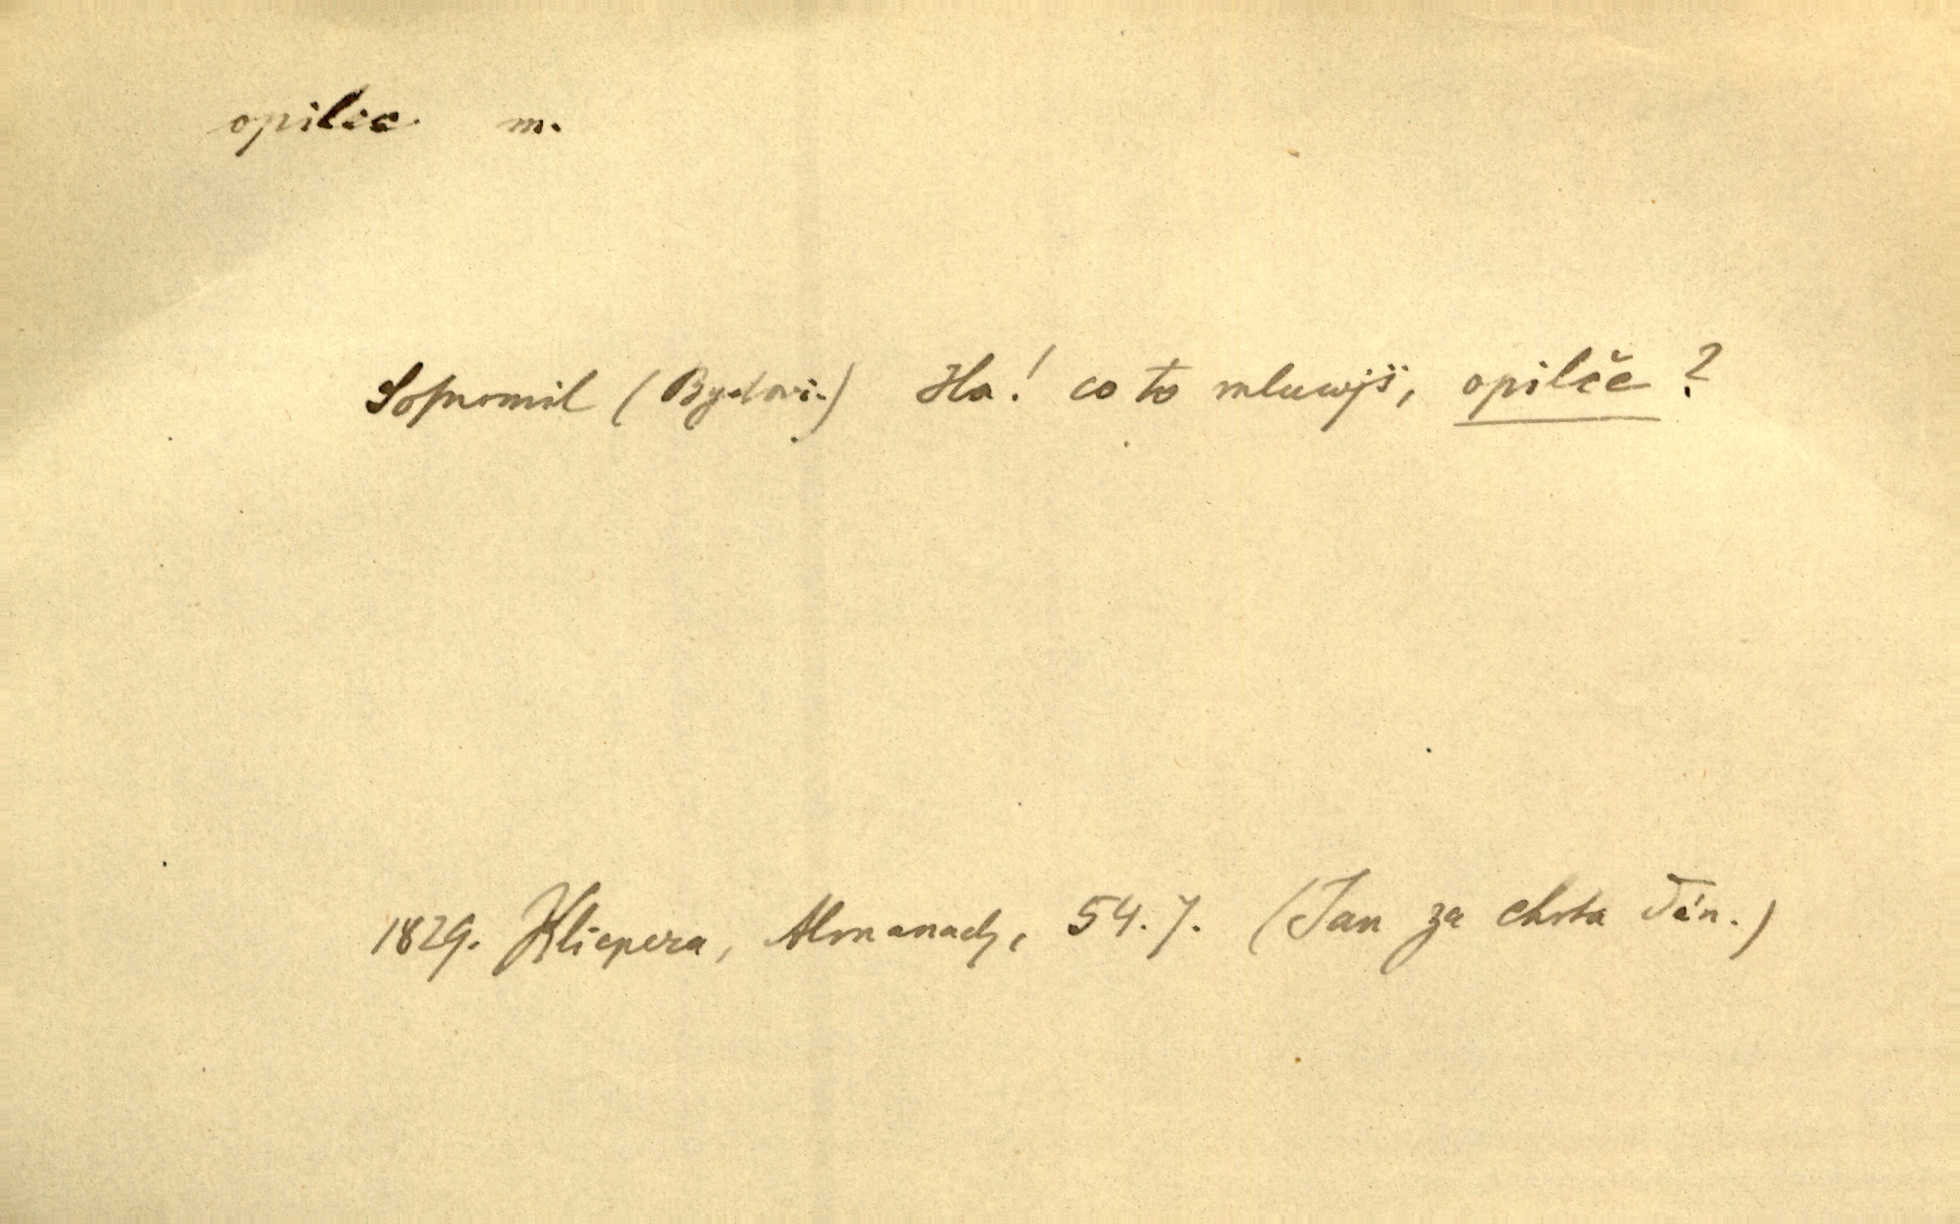 opilec m.
Sopnomil (Bydovi.) Ha! co to mluwjš, opilče?
1829. Klicpera, Almanach, 54.7. (Jan za chrta dán.)